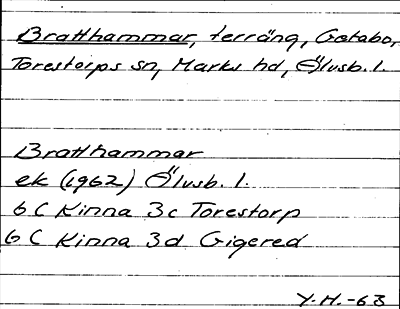 Bratthammar, terräng, Götabo,
Torestorps sn, Marks hd, Älvsb. l.
Bratthammar
ek (1962) Älvsb. l.
6 C Kinna 3c Torestorp
6 C Kinna 3d Gigered
Y. H. -63